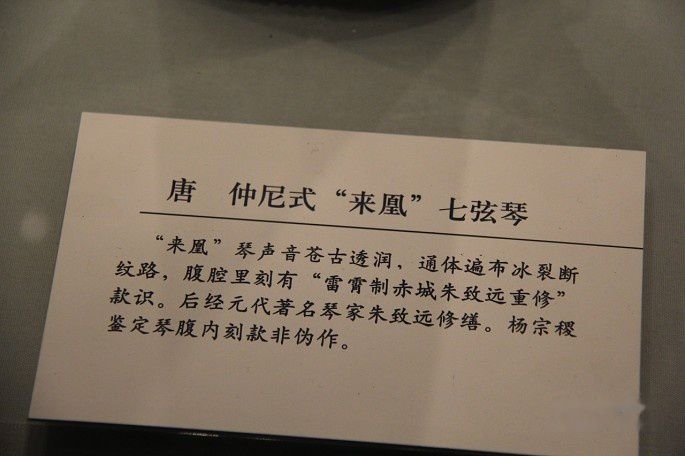 唐 仲尼式“来凰”七弦琴
“来凰”琴声音苍古透润，通体遍布冰裂断
纹路，腹腔里刻有“雷霄制赤城朱致远重修”
款识。后经元代著名琴家朱致远修缮。杨宗稷
鉴定琴腹内刻款非伪作。